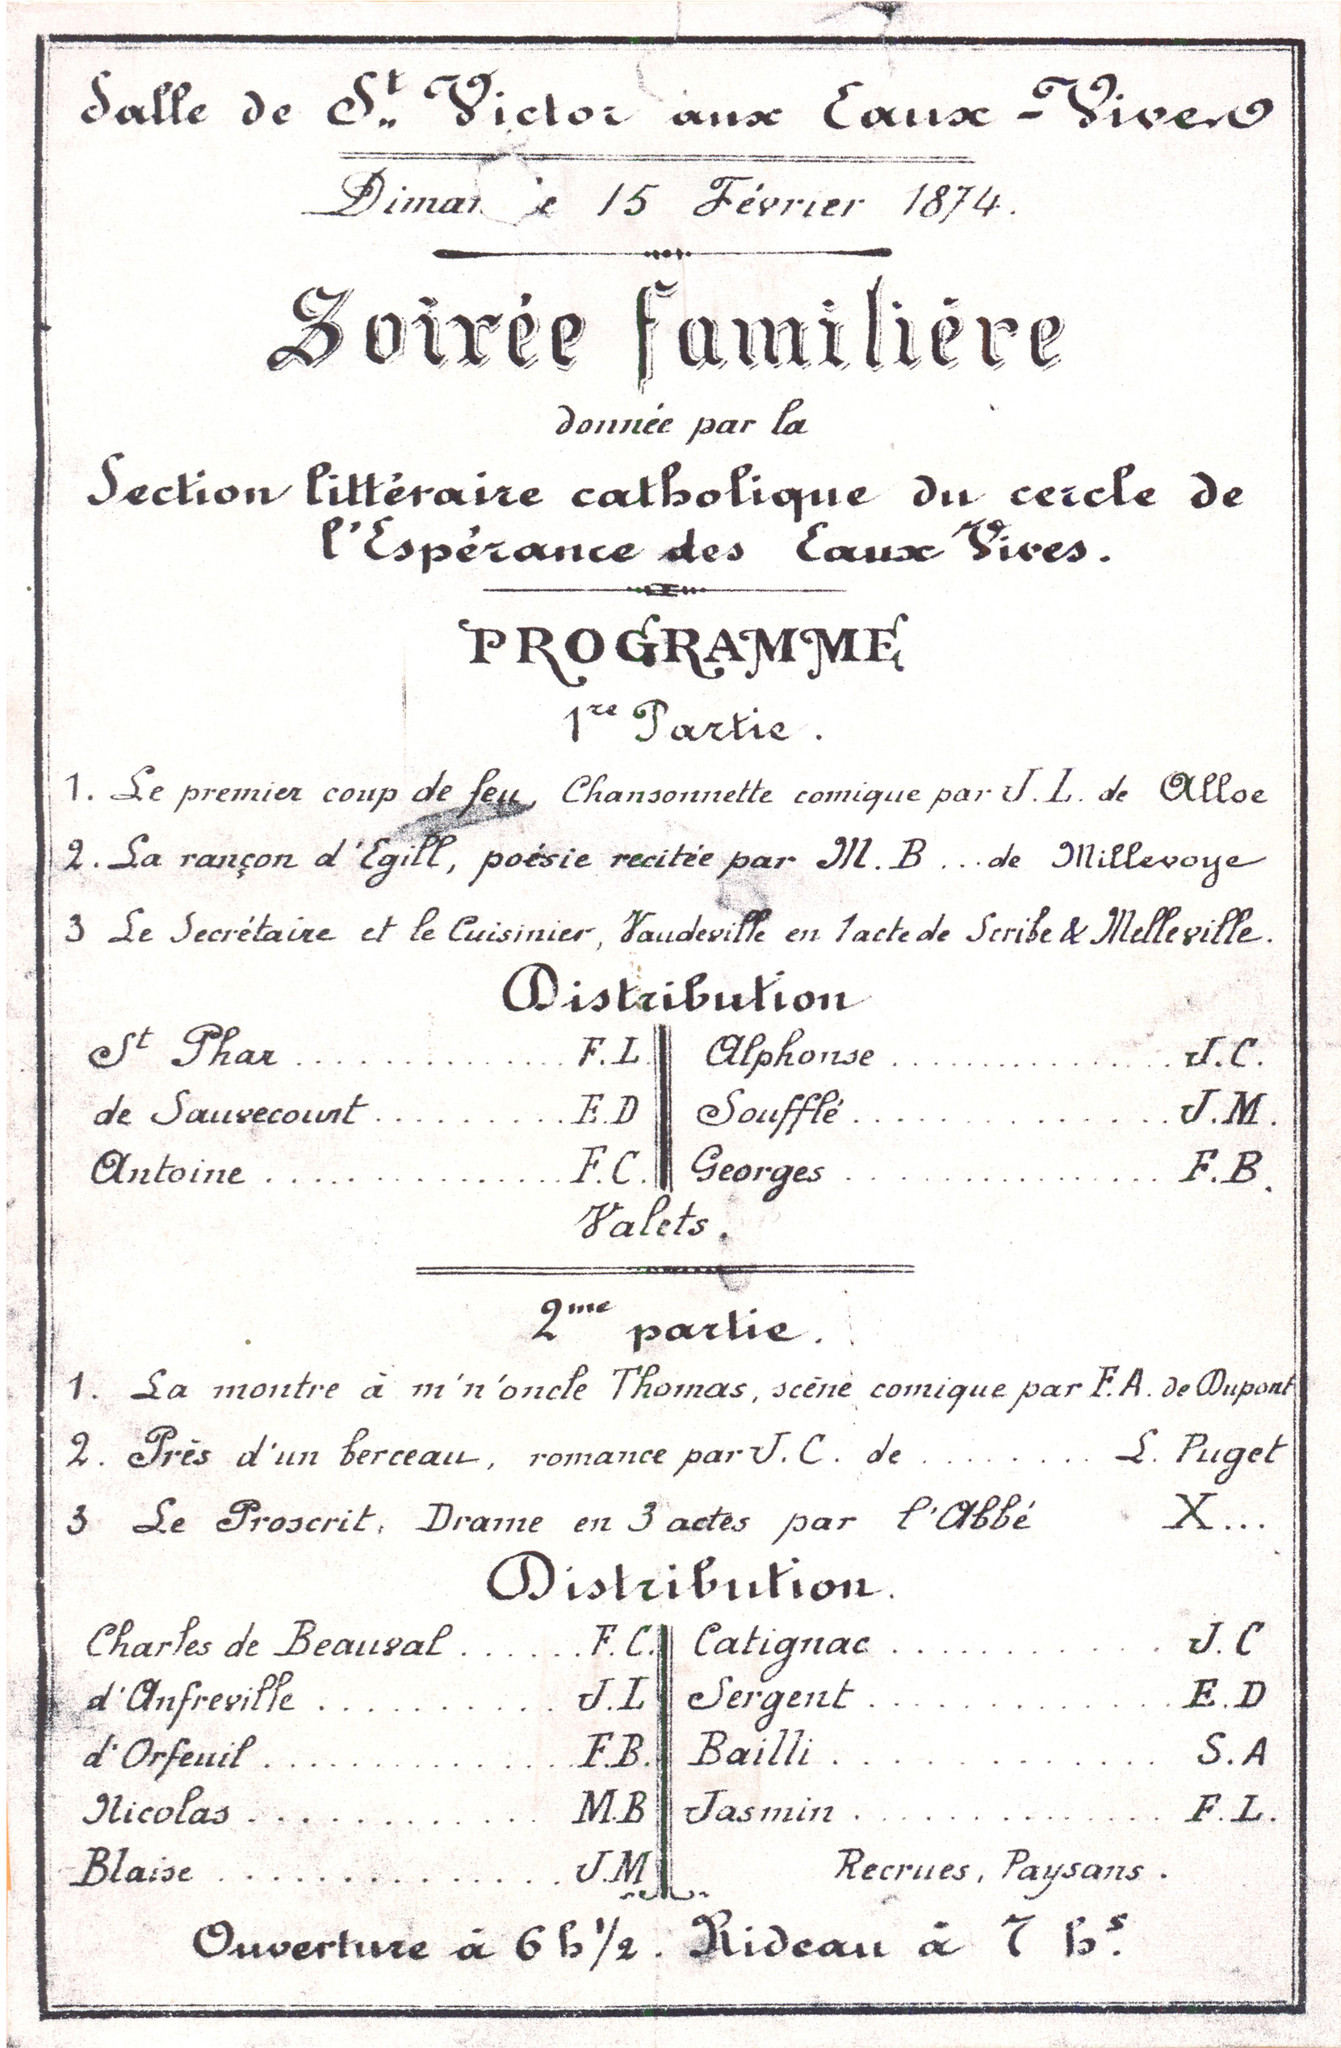 Salle de St Victor aux Eaux-Vives
Dimanche 15 Février 1874.
Soirée familière
donnée par la
Section littéraire catholique du cercle de
l'Espérance des Eaux Vives.
PROGRAMME
1re Partie.
1. Le premier coup de feu, Chansonnette comique par J.L. de Alloe
2. La rançon d'Egill, poésie recitée par M.B... de Millevoye
3 Le Secrétaire et le Cuisinier, Vaudeville en 1 acte de Scribe & Melleville.
Distribution
St Phar .............. F.L Alphonse .............. J.C.
de Sauvecourt .......... E.D Soufflé ................ J.M.
Antoine ............... F.C. Georges ................ F.B.
Valets.
2me partie.
1. La montre à m'n'oncle Thomas, scène comique par F.A. de Dupont
2. Près d'un berceau, romance par J.C. de ........ L. Puget
3 Le Proscrit, Drame en 3 actes par l'Abbé X...
Distribution.
Charles de Beauval ...... F.C. Catignac ............ J.C
d'Anfreville .......... J.L Sergent ............. E.D
d'Orfeuil .............. F.B. Bailli .............. S.A
Nicolas ............. M.B Jasmin .............. F.L.
Blaise .............. J.M Recrues, Paysans.
Ouverture à 6 h 1/2. Rideau à 7 hs.